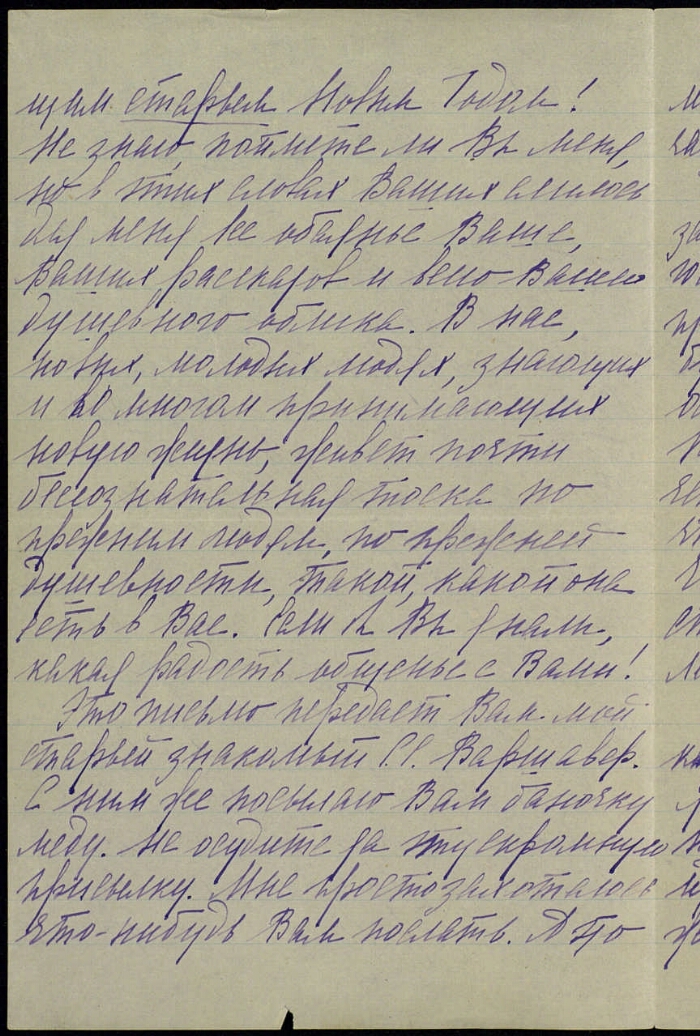 щим старым Новым Годом!
Не знаю, поймете ли Вы меня,
но в этих словах Ваших слилось
для меня все обаянье Ваше,
Ваших рассказов и всего Вашего
душевного облика. В нас,
новых, молодых людях, знающих
и во многом принимающих
новую жизнь, живет почти
бессознательная тоска по
прежним людям, по прежней
душевности, такой, какой она
есть в Вас. Если б Вы знали,
какая радость общенье с Вами!
Это письмо передаст Вам мой
старый знакомый С. С. Варшавер.
С ним же посылаю Вам баночку
меду. Не осудите за эту скромную
присылку. Мне просто захотелось
что-нибудь Вам послать. А по